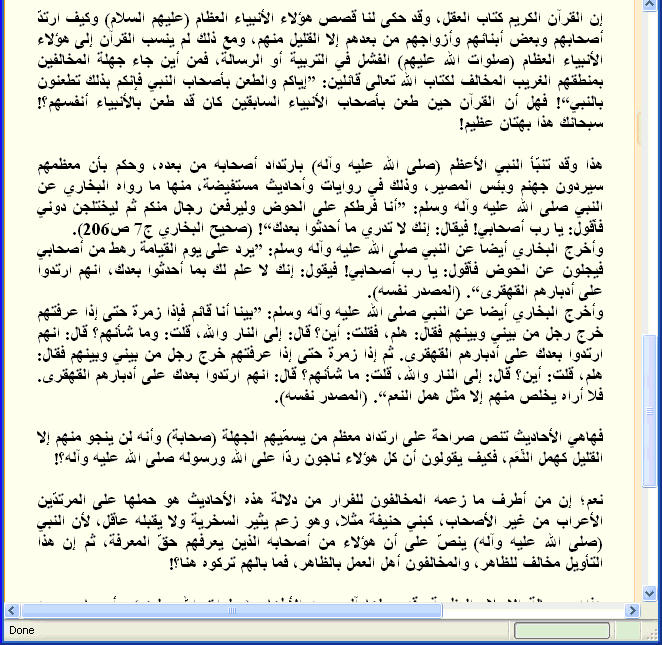 إن القرآن الكريم كتاب العقل، وقد حكى لنا قصص هؤلاء الأنبياء العظام (عليهم السلام) وكيف ارتدّ
أصحابهم وبعض أبنائهم وأزواجهم من بعدهم إلا القليل منهم، ومع ذلك لم ينسب القرآن إلى هؤلاء
الأنبياء العظام (صلوات الله عليهم) الفشل في التربية أو الرسالة، فمن أين جاء جهلة المخالفين
بمنطقهم الغريب المخالف لكتاب الله تعالى قائلين: ”إياكم والطعن بأصحاب النبي فإنكم بذلك تطعنون
بالنبي“! فهل أن القرآن حين طعن بأصحاب الأنبياء السابقين كان قد طعن بالأنبياء أنفسهم؟!
سبحانك هذا بهتان عظيم!
هذا وقد تنبّأ النبي الأعظم (صلى الله عليه وآله) بارتداد أصحابه من بعده، وحكم بأن معظمهم
سيردون جهنم وبئس المصير، وذلك في روايات وأحاديث مستفيضة، منها ما رواه البخاري عن
النبي صلى الله عليه وآله وسلم: ”أنا فرطكم على الحوض وليرفعن رجال منكم ثم ليختلجن دوني
فأقول: يا رب أصحابي! فيقال: إنك لا تدري ما أحدثوا بعدك“! (صحيح البخاري ج7 ص206).
وأخرج البخاري أيضا عن النبي صلى الله عليه وآله وسلم: ”يرد على يوم القيامة رهط من أصحابي
فيجلون عن الحوض فأقول: يا رب أصحابي! فيقول: إنك لا علم لك بما أحدثوا بعدك، انهم ارتدوا
على أدبارهم القهقرى“. (المصدر نفسه).
وأخرج البخاري أيضا عن النبي صلى الله عليه وآله وسلم: ”بينا أنا قائم فإذا زمرة حتى إذا عرفتهم
خرج رجل من بيني وبينهم فقال: هلم، فقلت: أين؟ قال: إلى النار والله، قلت: وما شأنهم؟ قال: انهم
ارتدوا بعدك على أدبارهم القهقرى. ثم إذا زمرة حتى إذا عرفتهم خرج رجل من بيني وبينهم فقال:
هلم، قلت: أين؟ قال: إلى النار والله، قلت: ما شأنهم؟ قال: انهم ارتدوا بعدك على أدبارهم القهقرى.
فلا أراه يخلص منهم إلا مثل همل النعم“. (المصدر نفسه).
فهاهي الأحاديث تنص صراحة على ارتداد معظم من يسمّيهم الجهلة (صحابة) وأنه لن ينجو منهم إلا
القليل كهمل النَّعَم، فكيف يقولون أن كل هؤلاء ناجون ردّا على الله ورسوله صلى الله عليه وآله؟!
نعم؛ إن من أطرف ما زعمه المخالفون للفرار من دلالة هذه الأحاديث هو حملها على المرتدّين
الأعراب من غير الأصحاب، كبني حنيفة مثلا، وهو زعم يثير السخرية ولا يقبله عاقل، لأن النبي
(صلى الله عليه وآله) ينصّ على أن هؤلاء من أصحابه الذين يعرفهم حقّ المعرفة، ثم إن هذا
التأويل مخالف للظاهر، والمخالفون أهل العمل بالظاهر، فما بالهم تركوه هنا؟!
Done